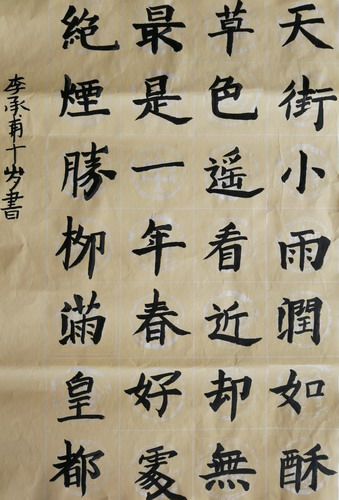 天街小雨潤如酥
草色遥看近却無
最是一年春好處
絕煙勝柳滿皇都
李承甫十岁書